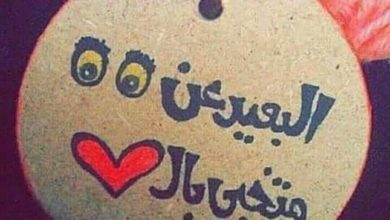 البعيد عن
متخبي بال